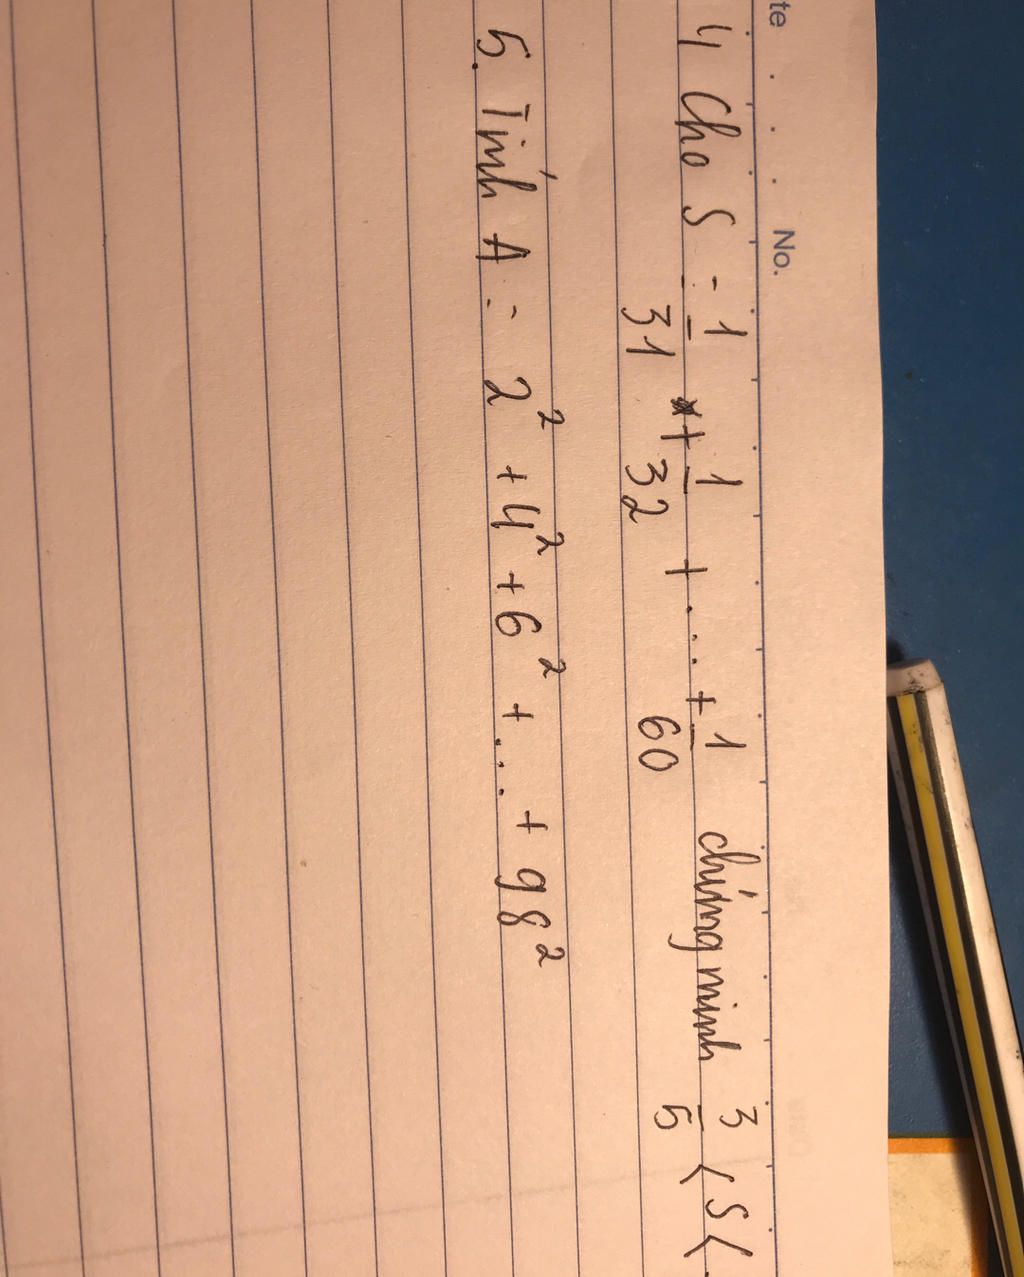 te . . . No.
4 Cho S = 1/31 + 1/32 + ... + 1/60 chứng minh 3/5 < S <
5. Tính A = 2² + 4² + 6² + ... + 98²